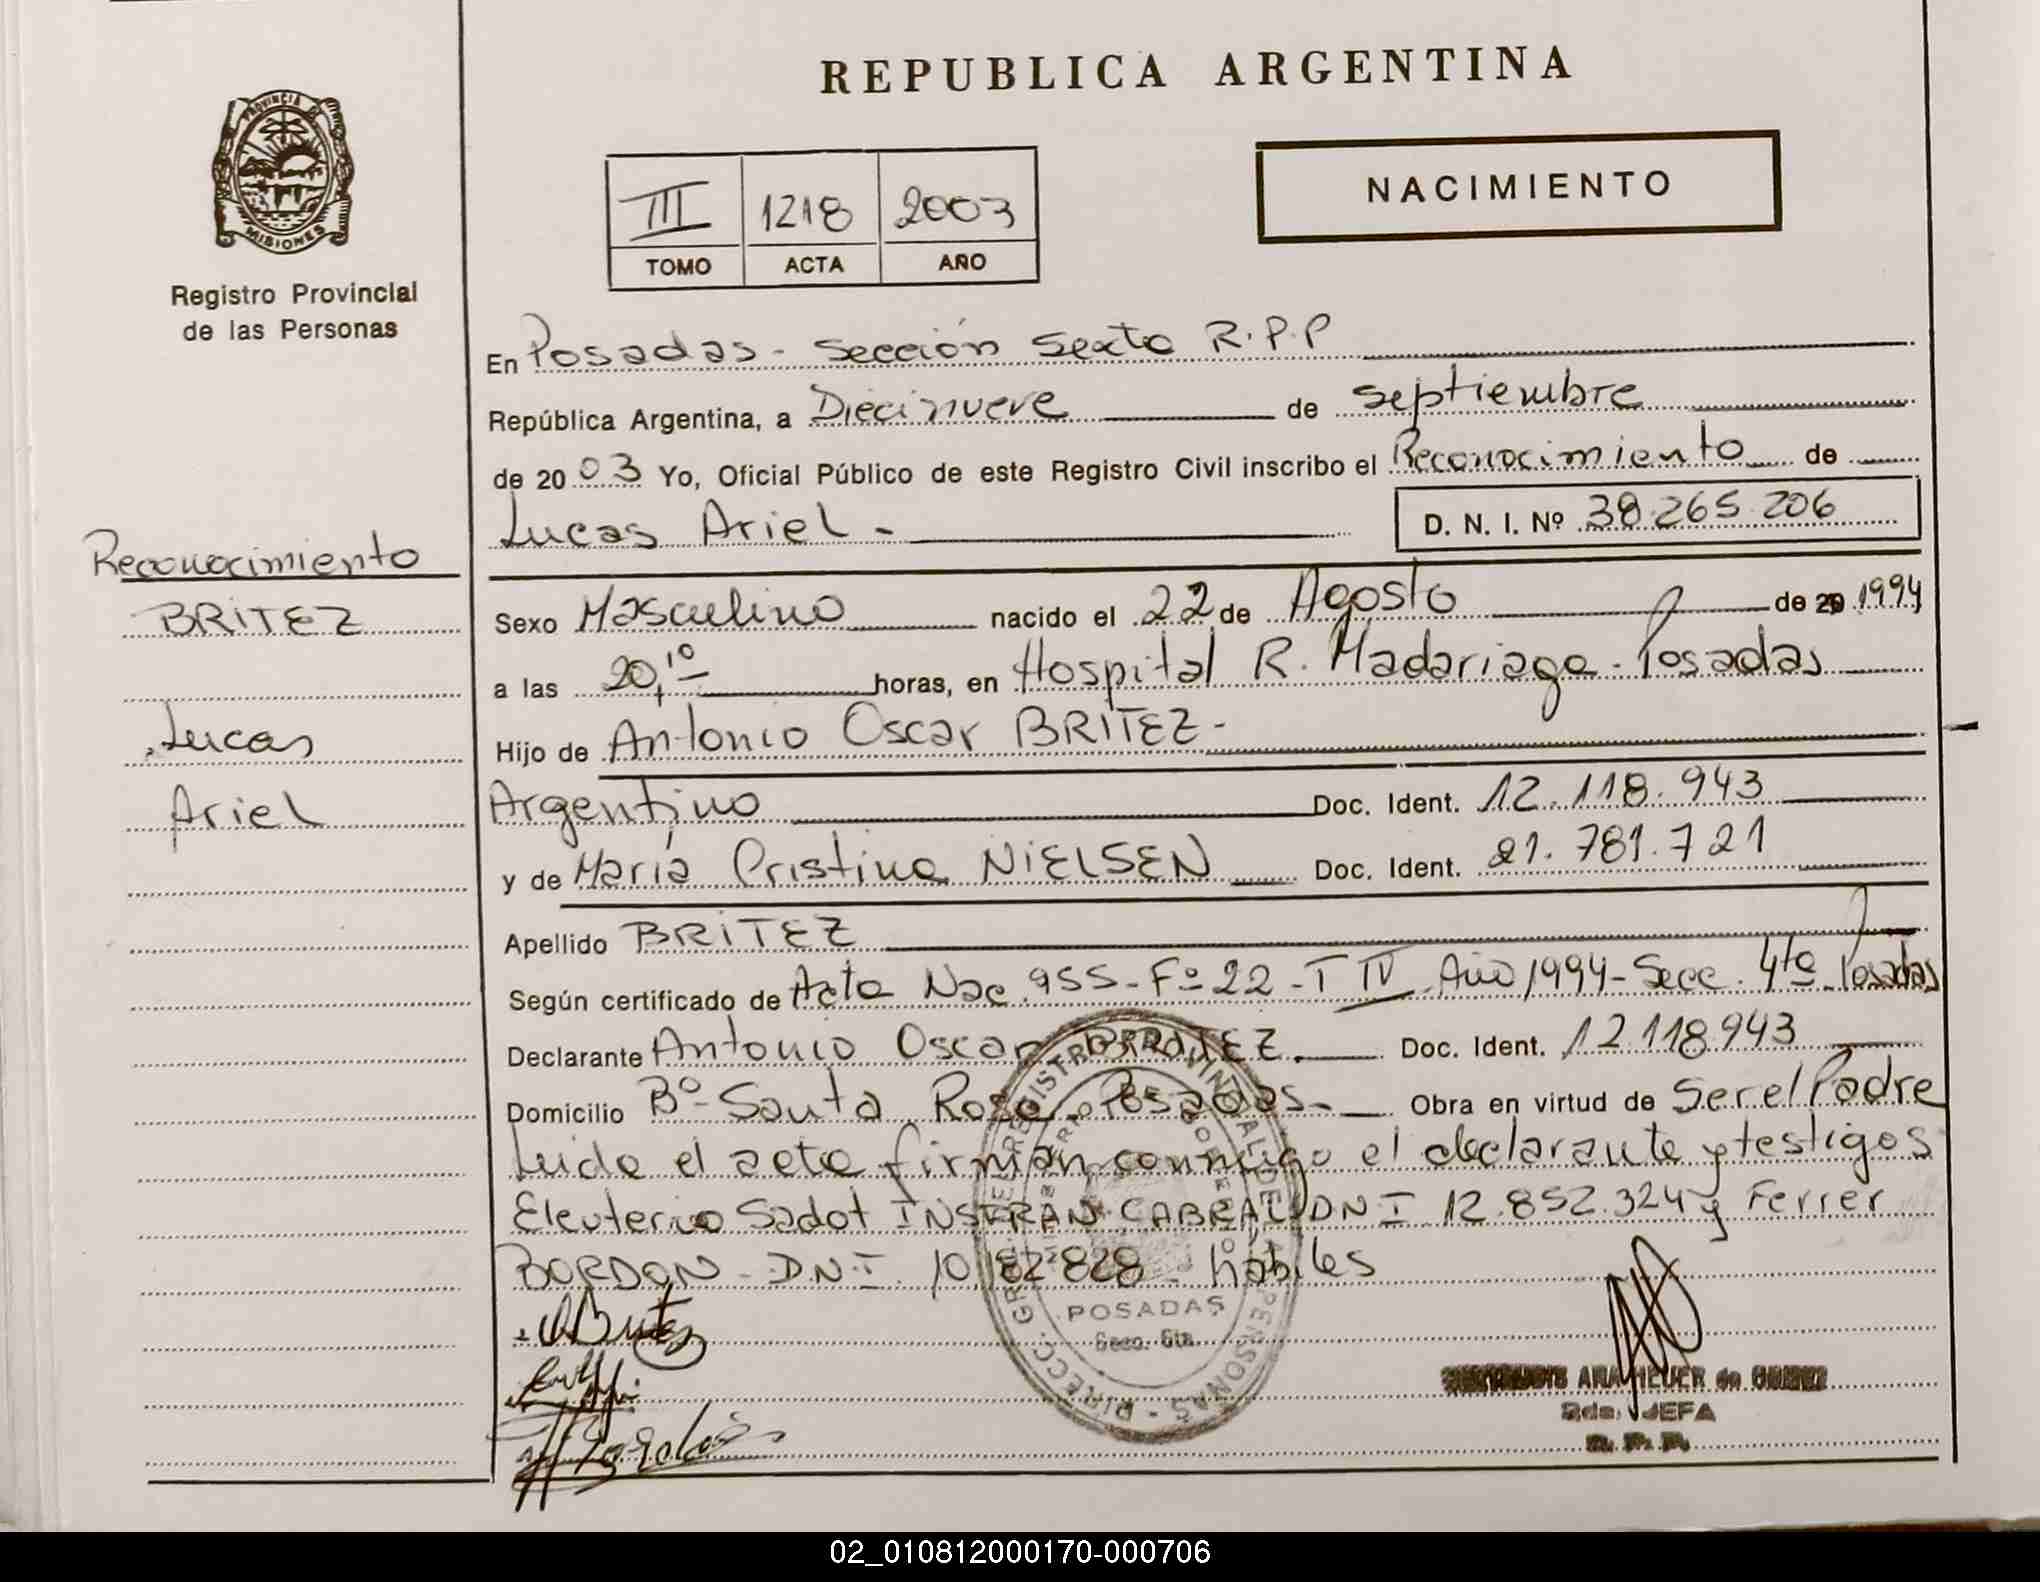 REPUBLICA ARGENTINA
PROVINCIA DE
MISIONES
Registro Provincial
de las Personas
III 1218 2003
TOMO ACTA AÑO
NACIMIENTO
En Posadas - Sección Sexta R.P.P
República Argentina, a Diecinueve de septiembre
de 2003 Yo, Oficial Público de este Registro Civil inscribo el Reconocimiento de
Lucas Ariel - D. N. I. Nº 38.265.206
Reconocimiento
BRITEZ
Lucas
Ariel
Sexo Masculino nacido el 22 de Agosto de 20 1994
a las 20,10 horas, en Hospital R. Madariaga - Posadas
Hijo de Antonio Oscar BRITEZ -
Argentino Doc. Ident. 12.118.943
y de María Cristina NIELSEN Doc. Ident. 21.781.721
Apellido BRITEZ
Según certificado de Acta Nac. 955 - Fº 22 - T IV Año 1994 - Secc. 4ta Posadas
Declarante Antonio Oscar BRITEZ. Doc. Ident. 12.118.943
Domicilio Bº Santa Rosa - Posadas - Obra en virtud de Ser el Padre
Leida el acta firman conmigo el declarante y testigos
Eleuterio Sadot INSFRAN CABRAL DNI 12.852.324 y Ferrer
BORDON - DNI 10.182.828 - hábiles
POSADAS
Secc. 6ta.
de
JEFA
R. P. P.
02_010812000170-000706